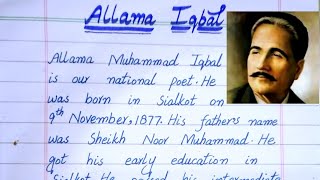 Allama Iqbal
Allama Muhammad Iqbal
is our national poet. He
was born in Sialkot on
9th November, 1877. His father's name
was Sheikh Noor Muhammad. He
got his early education in
Sialkot. He passed his intermediate